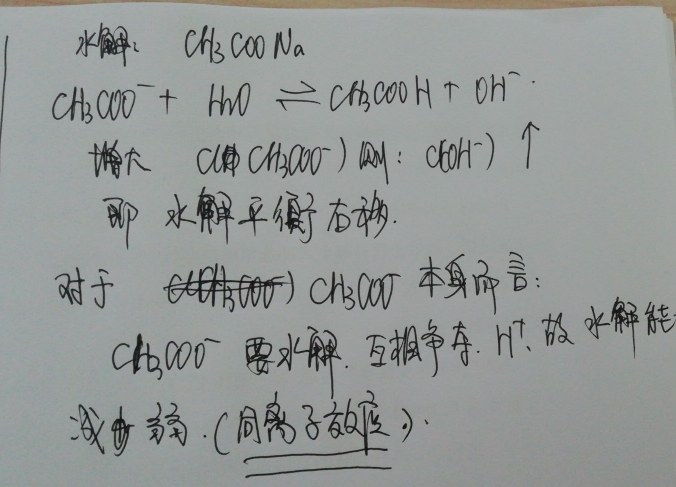 水解: CH3COONa
CH3COO⁻ + H2O ⇌ CH3COOH + OH⁻.
增大 c(CH3COO⁻) 则: c(OH⁻) ↑
即 水解平衡右移.
对于 CH3COO⁻ 本身而言:
CH3COO⁻ 要水解, 互相争夺 H⁺, 故 水解能
减弱. (同离子效应).